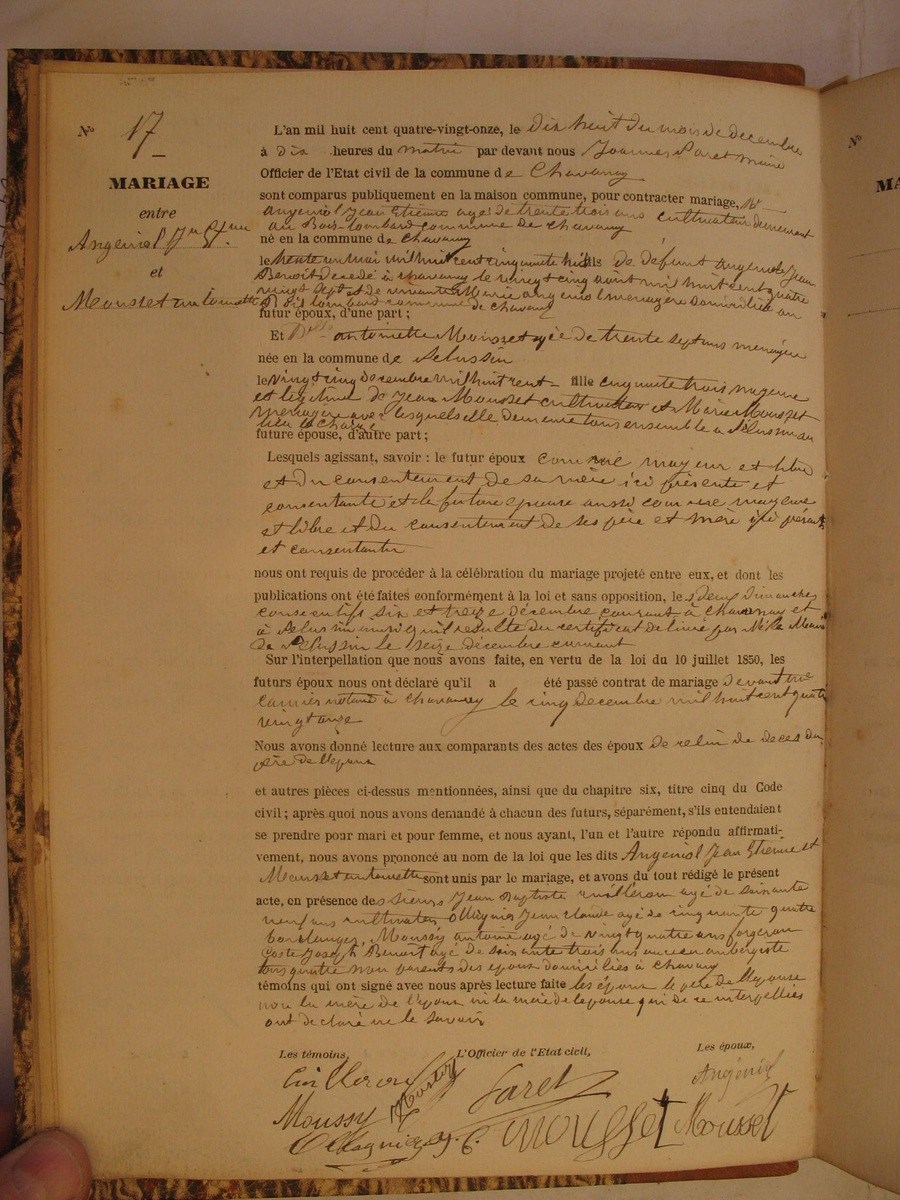 N° 17
MARIAGE
entre
Angeniol Jn Etne
et
Mousset antoinette
L'an mil huit cent quatre-vingt-onze, le dix huit du mois de decembre
à dix heures du matin par devant nous Joannes Paret maire
Officier de l'Etat civil de la commune de Chavanay
sont comparus publiquement en la maison commune, pour contracter mariage, Mr
angeniol Jean Etienne agé de trente trois ans cultivateur demeurant
au Bois-lombard commune de chavanay
né en la commune de chavanay
le trente un mai mil huit cent cinquante huit fils de défunt angeniol Jean
Benoit decedé à chavanay le vingt cinq aout mil huit cent quatre
vingt sept et de vivante Marie angeniol menagère domiciliée au
Bois lombard commune de chavanay
futur époux, d'une part ;
Et Delle antoinette Mousset agée de trente sept ans menagère
née en la commune de Pelussin
le vingt cinq decembre mil huit cent fille cinquante trois majeure
et legitime de Jean Mousset cultivateur et Marie Mousset
menagere avec lesquels elle demeure tous ensemble a Pelussin au
lieu
future épouse, d'autre part ;
Lesquels agissant, savoir : le futur époux comme majeur et libre
et du consentement de sa mère ici présente et
consentante et la future epouse aussi comme majeure
et libre et du consentement de ses père et mère ici présents
et consentants
nous ont requis de procéder à la célébration du mariage projeté entre eux, et dont les
publications ont été faites conformément à la loi et sans opposition, les deux dimanches
consecutifs six et treize décembre courant à chavanay et
à Pelussin ainsi qu'il résulte du certificat delivré par Mr le Maire
de Pelussin le seize décembre courant
Sur l'interpellation que nous avons faite, en vertu de la loi du 10 juillet 1850, les
futurs époux nous ont déclaré qu'il a été passé contrat de mariage devant Me
notaire à chavanay le cinq decembre mil huit cent quatre
vingt onze
Nous avons donné lecture aux comparants des actes des époux de celui de deces du
père de l'epoux
et autres pièces ci-dessus mentionnées, ainsi que du chapitre six, titre cinq du Code
civil ; après quoi nous avons demandé à chacun des futurs, séparément, s'ils entendaient
se prendre pour mari et pour femme, et nous ayant, l'un et l'autre répondu affirmati-
vement, nous avons prononcé au nom de la loi que les dits Angeniol Jean Etienne et
Mousset antoinette sont unis par le mariage, et avons du tout rédigé le présent
acte, en présence des sieurs Jean Baptiste cuilleron agé de soixante
neuf ans cultivateur, Ollagnier Jean claude agé de cinquante quatre
boulanger, Moussy antoine agé de vingt quatre ans forgeron
Coste Joseph Benoit agé de soixante trois ans ancien aubergiste
tous quatre non parents des epoux domiciliés à chavanay
témoins qui ont signé avec nous après lecture faite les époux le père de l'epouse
non la mère de l'epoux ni la mère de l'epouse qui de ce interpellées
ont declaré ne le savoir
Les témoins,
L'Officier de l'Etat civil,
Les époux,
Cuilleron
Paret
Angéniol
Moussy
Mousset
Mousset
Ollagnier
N°
MA